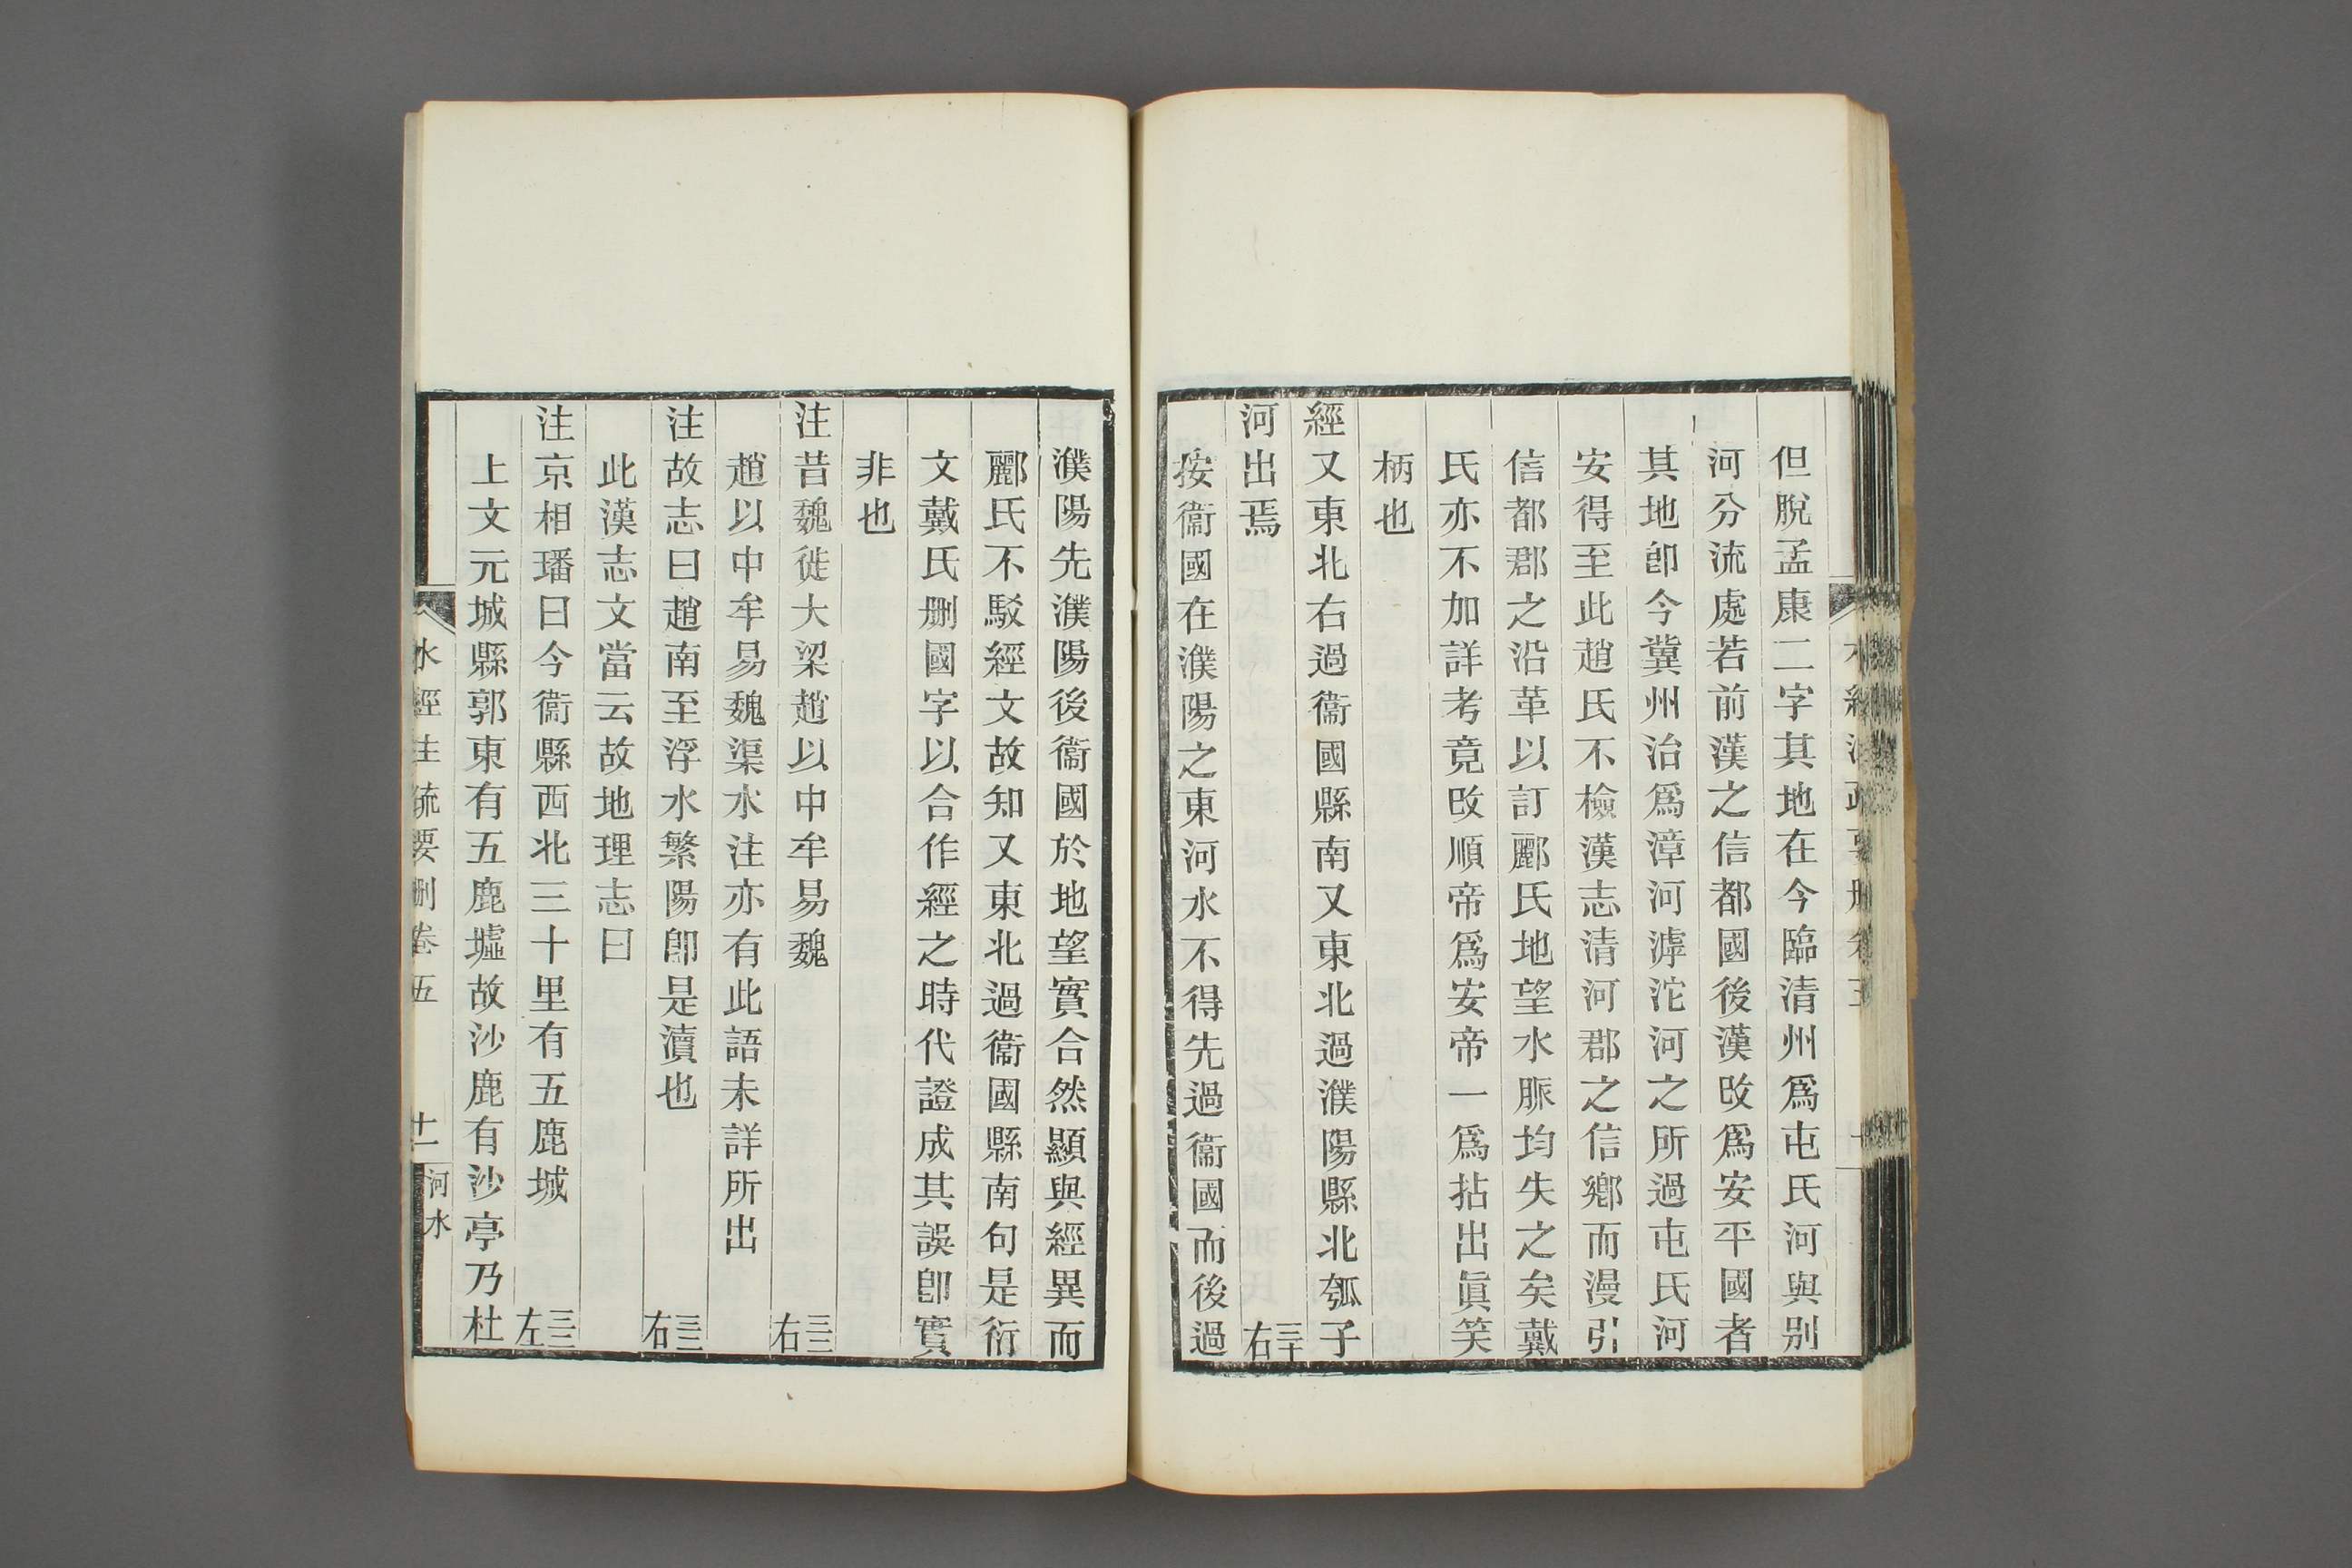 但脫孟康二字其地在今臨清州爲屯氏河與別
河分流處若前漢之信都國後漢改爲安平國者
其地卽今冀州治爲漳河滹沱河之所過屯氏河
安得至此趙氏不檢漢志清河郡之信鄉而漫引
信都郡之沿革以訂酈氏地望水脈均失之矣戴
氏亦不加詳考竟改順帝爲安帝一爲拈出眞笑
柄也
經又東北右過衞國縣南又東北過濮陽縣北瓠子
河出焉 三十右
按衞國在濮陽之東河水不得先過衞國而後過
濮陽先濮陽後衞國於地望實合然顯與經異而
酈氏不駁經文故知又東北過衞國縣南句是衍
文戴氏刪國字以合作經之時代證成其誤卽實
非也
注昔魏徙大梁趙以中牟易魏 三二右
趙以中牟易魏渠水注亦有此語未詳所出
注故志曰趙南至浮水繁陽卽是瀆也 三三右
此漢志文當云故地理志曰
注京相璠曰今衞縣西北三十里有五鹿城 三三左
上文元城縣郭東有五鹿墟故沙鹿有沙亭乃杜
水經注疏要刪卷五 十一 河水